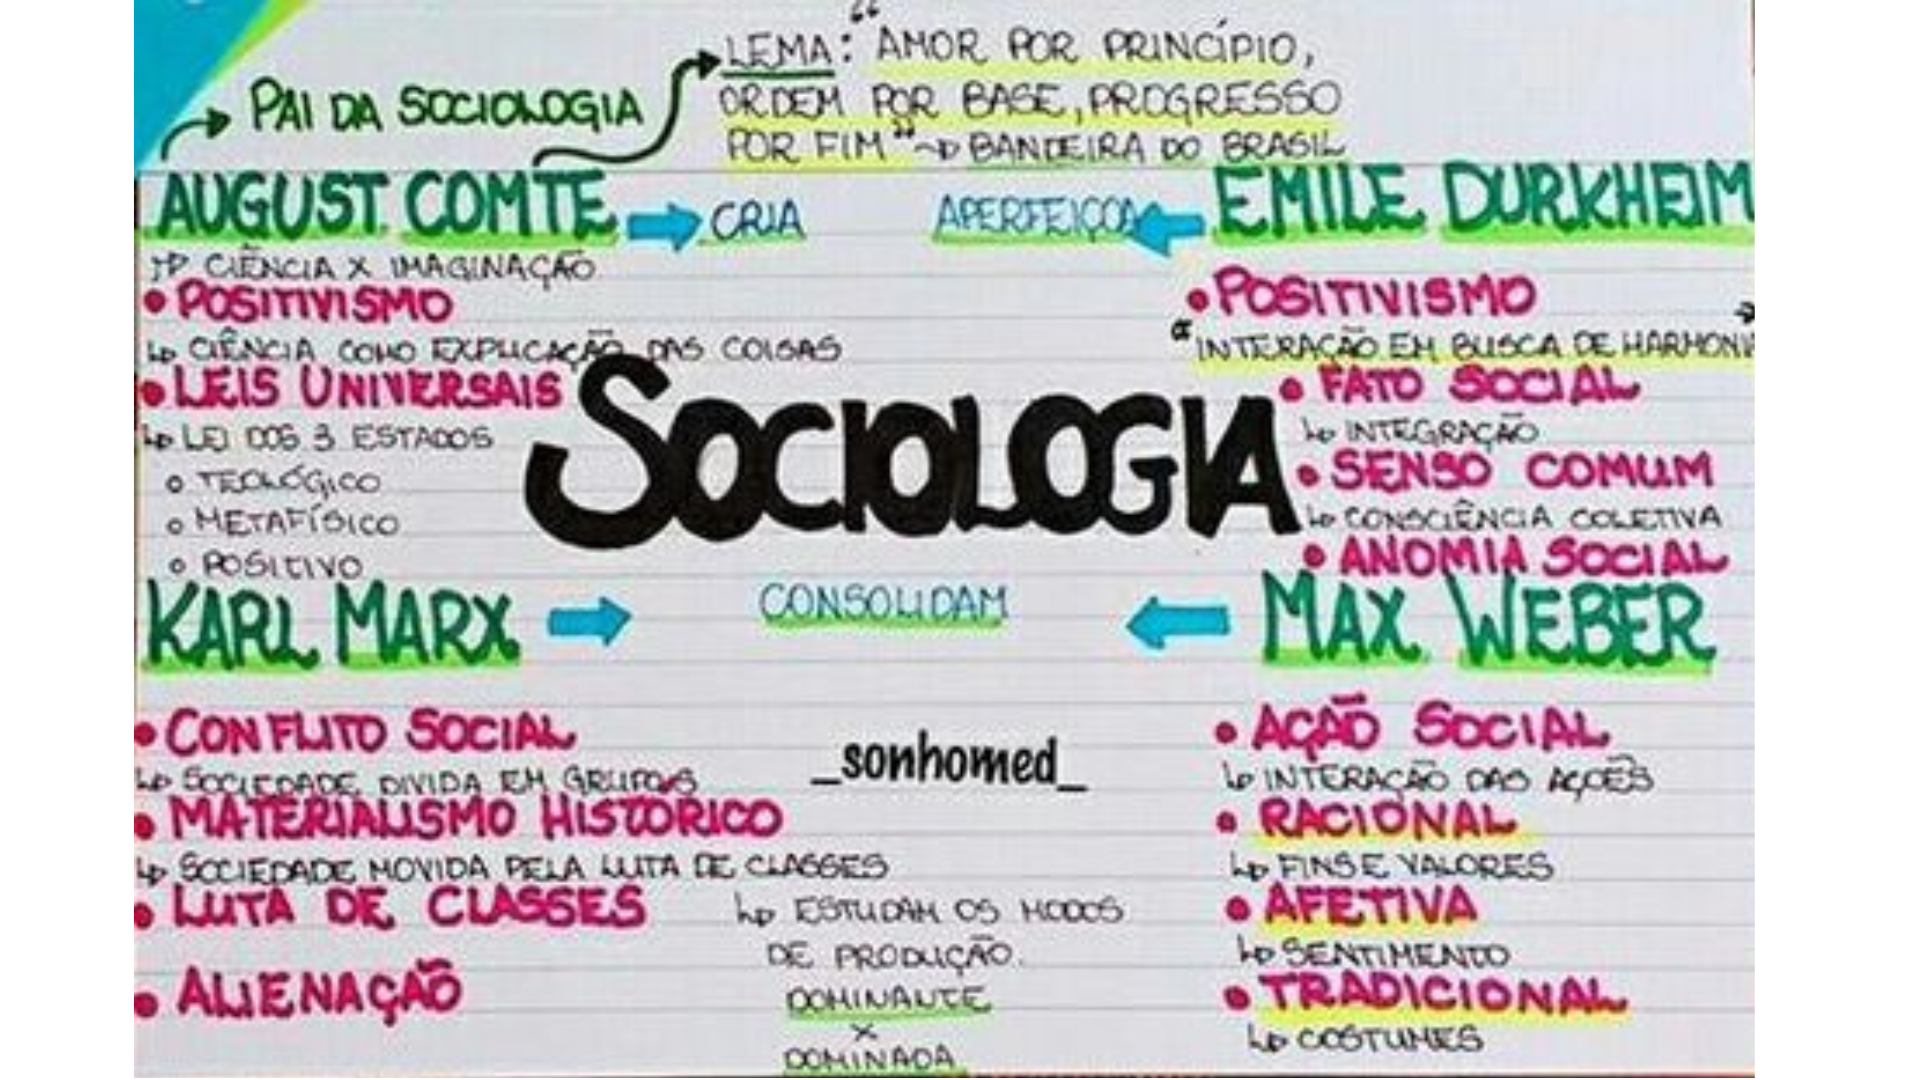 LEMA: "AMOR POR PRINCÍPIO,
ORDEM POR BASE, PROGRESSO
POR FIM" → BANDEIRA DO BRASIL
→ PAI DA SOCIOLOGIA
AUGUST COMTE → CRIA
↱ CIÊNCIA X IMAGINAÇÃO
• POSITIVISMO
↳ CIÊNCIA COMO EXPLICAÇÃO DAS COISAS
• LEIS UNIVERSAIS
↳ LEI DOS 3 ESTADOS
○ TEOLÓGICO
○ METAFÍSICO
○ POSITIVO
APERFEIÇOA ← EMILE DURKHEIM
• POSITIVISMO
"INTERAÇÃO EM BUSCA DE HARMONI
• FATO SOCIAL
↳ INTEGRAÇÃO
• SENSO COMUM
↳ CONSCIÊNCIA COLETIVA
• ANOMIA SOCIAL
SOCIOLOGIA
KARL MARX → CONSOLIDAM ← MAX WEBER
• CONFLITO SOCIAL
↳ SOCIEDADE DIVIDA EM GRUPOS
• MATERIALISMO HISTÓRICO
↳ SOCIEDADE MOVIDA PELA LUTA DE CLASSES
• LUTA DE CLASSES
↳ ESTUDAM OS MODOS
DE PRODUÇÃO.
DOMINANTE
X
DOMINADA
• ALIENAÇÃO
_sonhomed_
• AÇÃO SOCIAL
↳ INTERAÇÃO DAS AÇÕES
• RACIONAL
↳ FINS E VALORES
• AFETIVA
↳ SENTIMENTO
• TRADICIONAL
↳ COSTUMES